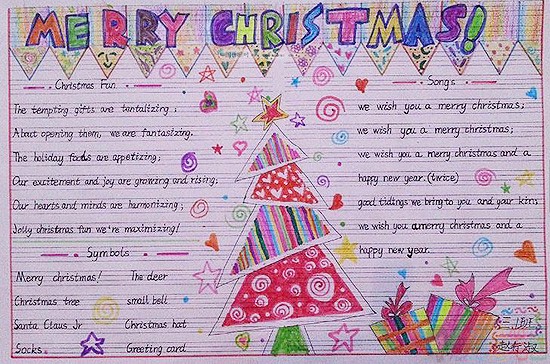 MERRY CHRISTMAS!
Christmas Fun
The tempting gifts are tantalizing;
About opening them, we are fantasizing.
The holiday foods are appetizing;
Our excitement and joy are growing and rising;
Our hearts and minds are harmonizing;
Jolly christmas fun we're maximizing!
Symbols
Merry christmas! The deer
Christmas tree small bell
Santa Claus Jr Christmas hat
Socks Greeting card
Songs
we wish you a merry christmas;
we wish you a merry christmas;
we wish you a merry christmas and a
happy new year.(twice)
good tidings we bring to you and your kins
we wish you amerry christmas and a
happy new year.